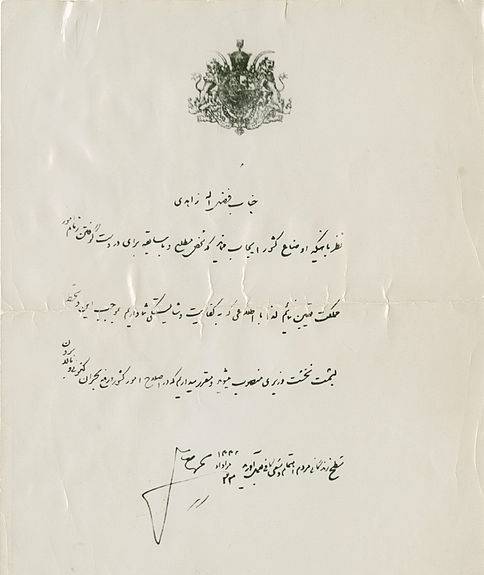 جناب فضل اله زاهدی
نظر باینکه اوضاع کشور ایجاب مینماید که شخص مطلع و با سابقه برای در دست گرفتن زمام امور
مملکت تعیین نمائیم لذا با اطلاعی که به کفایت و شایستگی شما داریم بموجب این دستخط
بسمت نخست وزیری منصوب میشوید و مقرر میداریم که در اصلاح امور کشور و رفع بحران کنونی و بالابردن
سطح زندگانی مردم اهتمام و سعی کافی بعمل آورید
۲۲ مرداد ۱۳۳۲